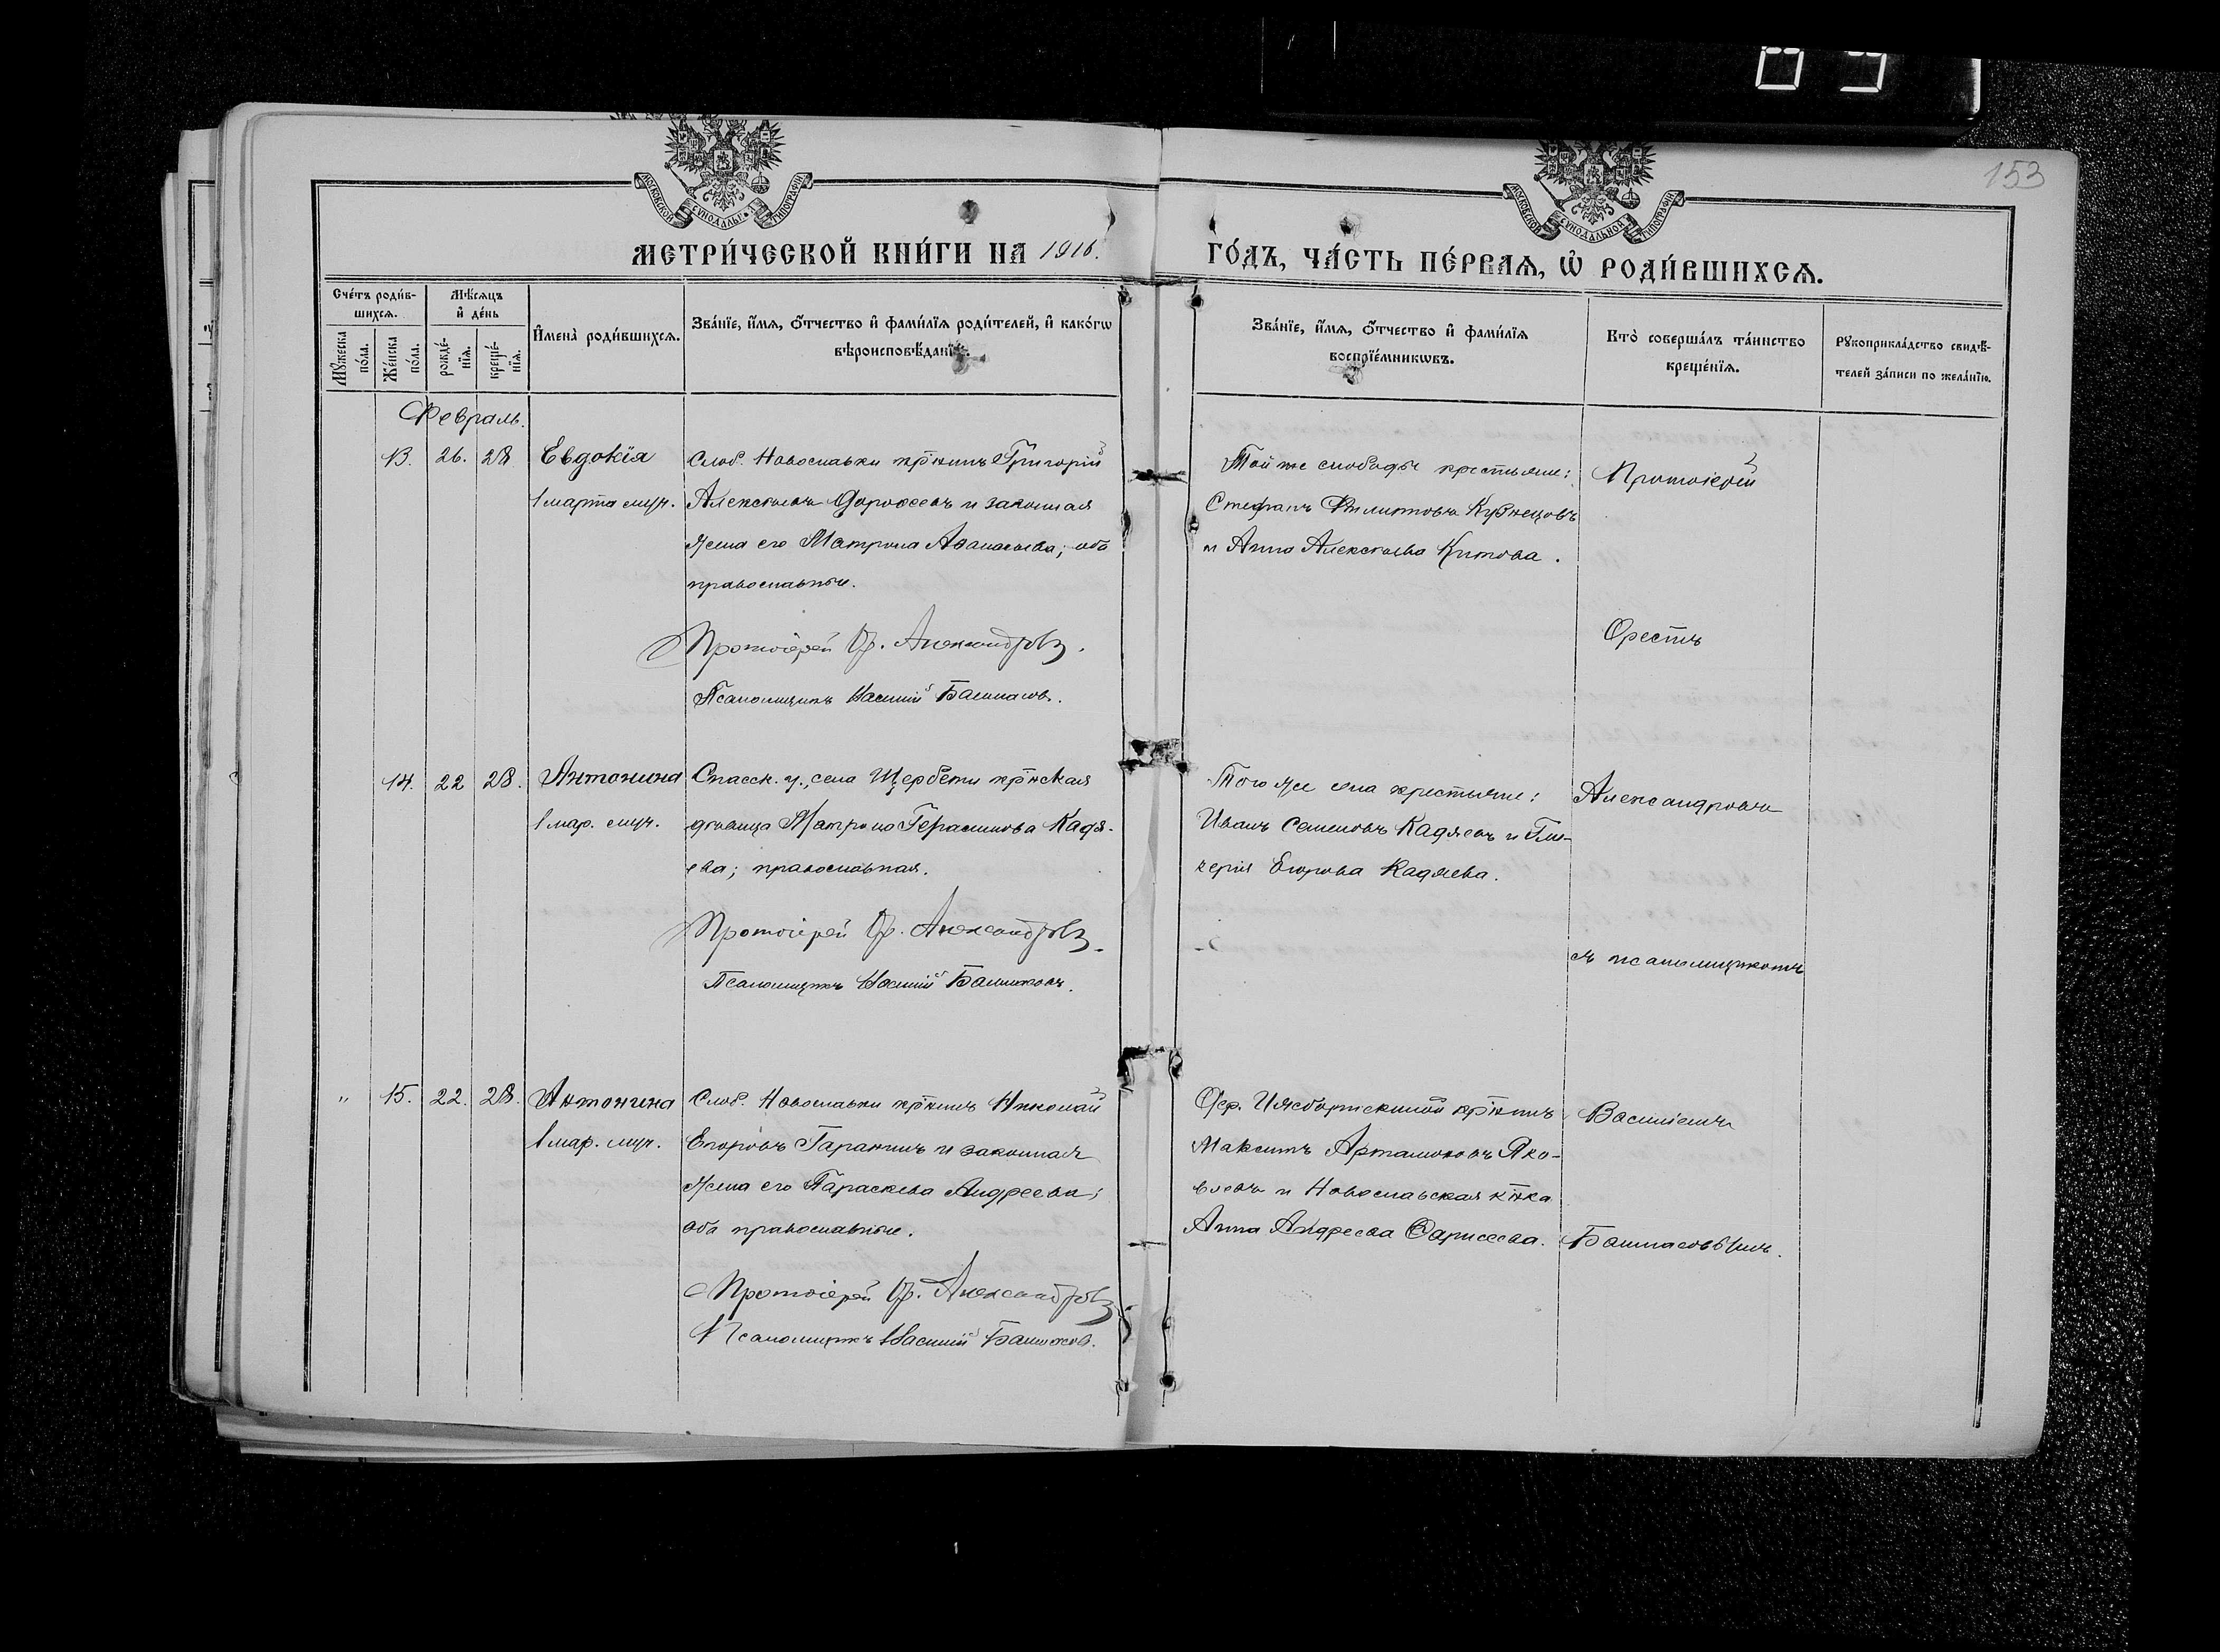 153
МОСКОВСКОЙ СѴНОДАЛЬНОЙ ТИПОГРАФІИ
МОСКОВСКОЙ СѴНОДАЛЬНОЙ ТИПОГРАФІИ
МЕТРИ́ЧЕСКОЙ КНИ́ГИ НА 1916.
ГО́ДЪ, ЧА́СТЬ ПЕ́РВАЯ, Ѽ РОДИ́ВШИХСЯ.
Сче́тъ роди́в-
шихся.
Мꙋжеска
по́ла.
Же́нска
по́ла.
Мѣ́сяцъ
и҆ де́нь
рожде́-
нїя.
креще́-
нїя.
И҆мена̀ роди́вшихся.
Зва́нїе, и҆́мя, ѻ҆́тчество и҆ фами́лїя роди́телей, и҆ како́гѡ
вѣроисповѣ́данїя.
Зва́нїе, и҆́мя, ѻ҆́тчество и҆ фами́лїя
воспрїе́мникѡвъ.
Кто̀ соверша́лъ та́инство
креще́нїя.
Рꙋкоприкла́дство свидѣ́-
телей за́писи по жела́нїю.
Февраль.
13. 26. 28 Евдокія
1 марта муч.
Слоб. Новославки кр̃нинъ Григорій
Алексѣевъ Дороѳеевъ и законная
жена его Матрона Аѳанасьева; оба
православные.
Протоіерей Ор. Александровъ.
Псаломщикъ Василій Башмаковъ.
Той же слободы крестьяне:
Стефанъ Филипповъ Кузнецовъ
и Анна Алексѣева Китова.
Протоіерей
Орестъ
14. 22 28. Антонина
1 мар. муч.
Спасск. у., села Щербети кр̃нская
дѣвица Матрона Герасимова Кадя-
ева; православная.
Протоіерей Ор. Александровъ.
Псаломщикъ Василій Башмаковъ.
Того же села крестьяне:
Иванъ Семеновъ Кадяевъ и Гли-
керія Егорова Кадяева.
Александровъ
съ псаломщикомъ
" 15. 22. 28. Антонина
1 мар. муч.
Слоб. Новославки кр̃нинъ Николай
Егоровъ Гаранинъ и законная
жена его Параскева Андреева;
оба православные.
Протоіерей Ор. Александровъ
Псаломщикъ Василій Башмаковъ.
Дер. кр̃нинъ
Максимъ Артамоновъ Яко-
влевъ и Новославская к̃нка
Анна Андреева
Василіемъ
Башмаковымъ.